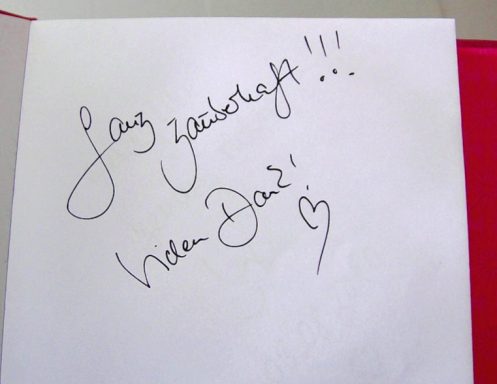 Ganz zauberhaft!!!
Vielen Dank!